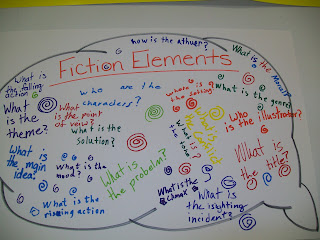 how is the athuer?
What is the Moral?
Fiction Elements
What is
the falling
action
who are the
characters?
where is
the setting
What is the genre?
What
is the
theme?
What is
the point
of veiw?
What is the
solution?
Who is
the illustrator?
What is
the main
idea?
What is
the mood?
What is
the probolm?
What is
the title?
What is the
Climax
What is
the isighting
incident?
What is the
rising action